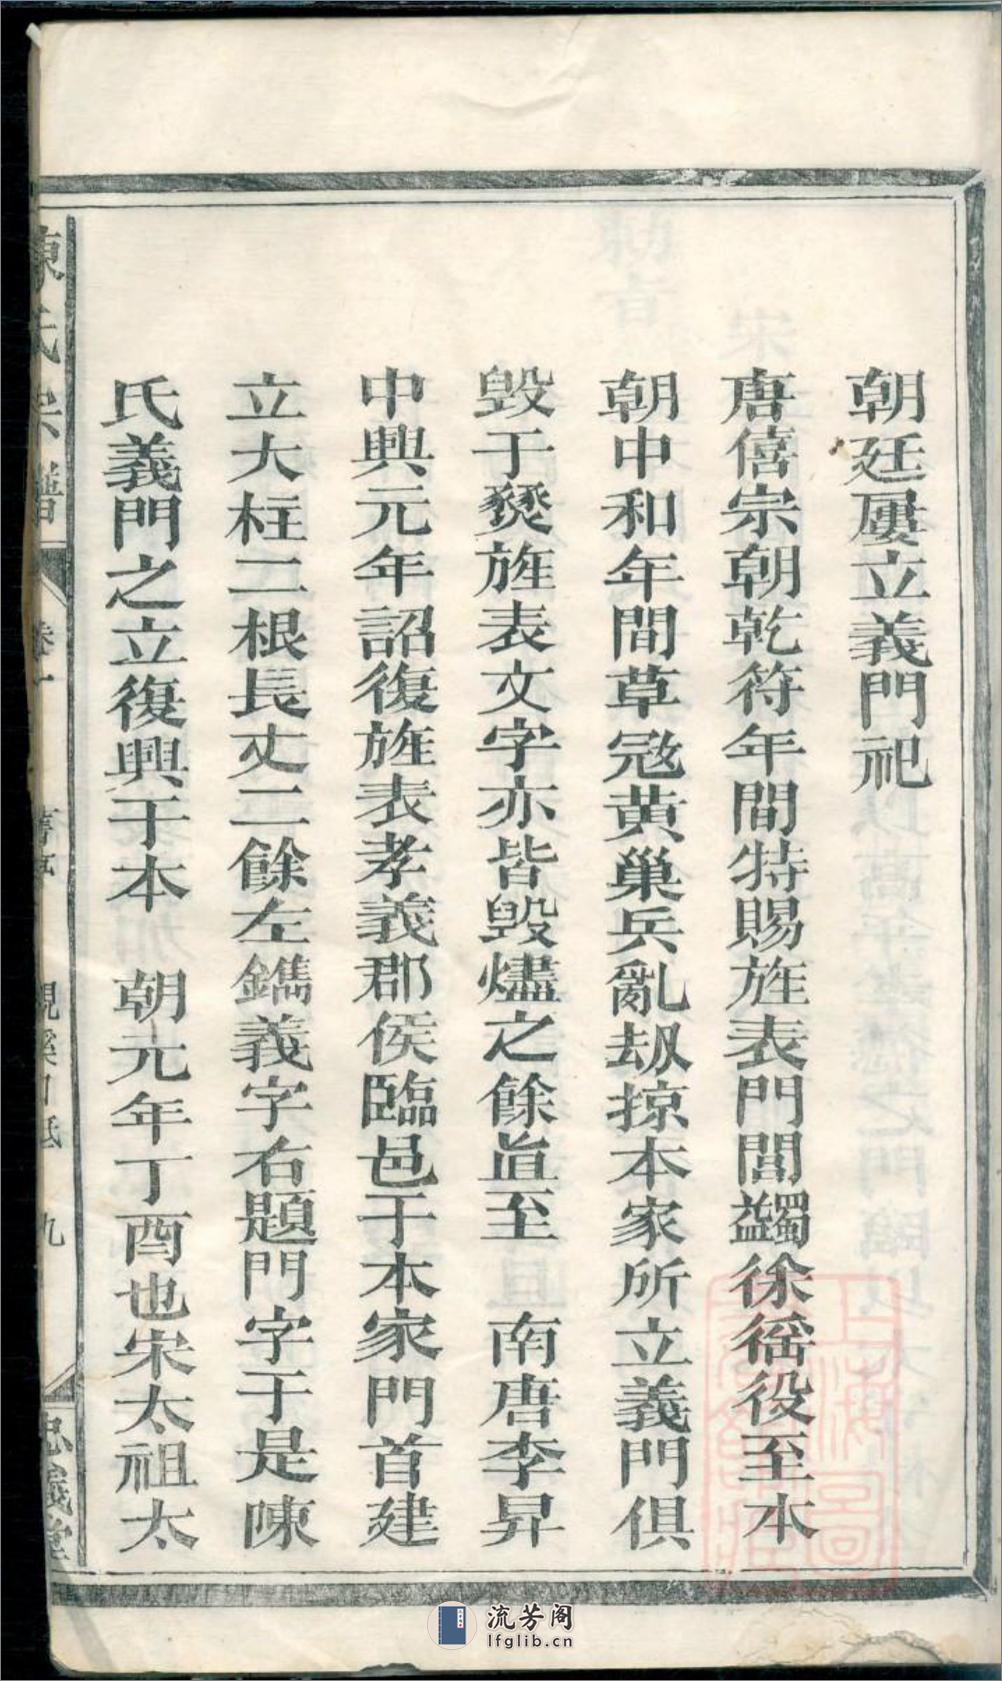 朝廷屢立義門祀
唐僖宗朝乾符年間特賜旌表門閭蠲徐徭役至本
朝中和年間草冦黃巢兵亂刼掠本家所立義門俱
毀于燹旌表文字亦皆毀燼之餘直至　南唐李昇
中興元年詔復旌表孝義郡侯臨邑于本家門首建
立大柱二根長丈二餘左鐫義字右題門字于是陳
氏義門之立復興于本　朝元年丁酉也宋太祖太
陳氏宗譜
卷一
九
忠義堂
流芳阁
lfglib.cn